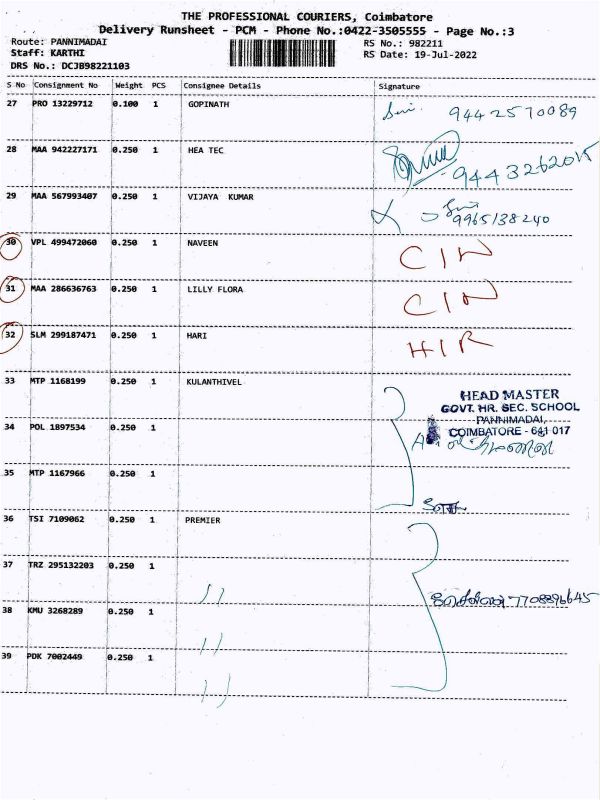 THE PROFESSIONAL COURIERS, Coimbatore
Delivery Runsheet - PCM - Phone No.:0422-3505555 - Page No.:3
Route: PANNIMADAI RS No.: 982211
Staff: KARTHI RS Date: 19-Jul-2022
DRS No.: DCJB98221103
S No Consignment No Weight PCS Consignee Details Signature
27 PRO 13229712 0.100 1 GOPINATH 9442570089
28 MAA 942227171 0.250 1 HEA TEC 9443262015
29 MAA 567993407 0.250 1 VIJAYA KUMAR
9965138240
30 VPL 499472060 0.250 1 NAVEEN CIN
31 MAA 286636763 0.250 1 LILLY FLORA CIN
32 SLM 299187471 0.250 1 HARI HIR
33 MTP 1168199 0.250 1 KULANTHIVEL
HEAD MASTER
GOVT. HR. SEC. SCHOOL
PANNIMADAI,
COIMBATORE - 641 017
34 POL 1897534 0.250 1
35 MTP 1167966 0.250 1
36 TSI 7109062 0.250 1 PREMIER
37 TRZ 295132203 0.250 1 11
7708896645
38 KMU 3268289 0.250 1 11
39 PDK 7002449 0.250 1 11